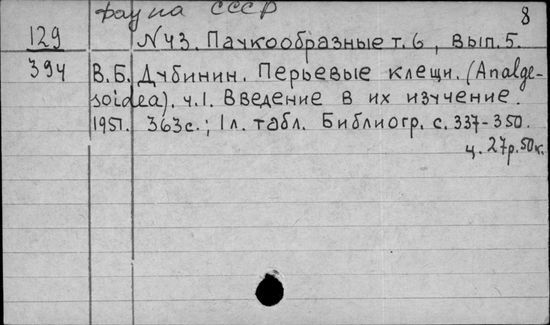 фауна СССР
8
129 N43. Паукообразные т.6, вып.5.
394 В.Б. Дубинин. Перьевые клещи. (Analge-
soidea). ч.1. Введение в их изучение.
1951. 363с.; 1л. табл. Библиогр. с. 337-350.
ц. 27р.50к.